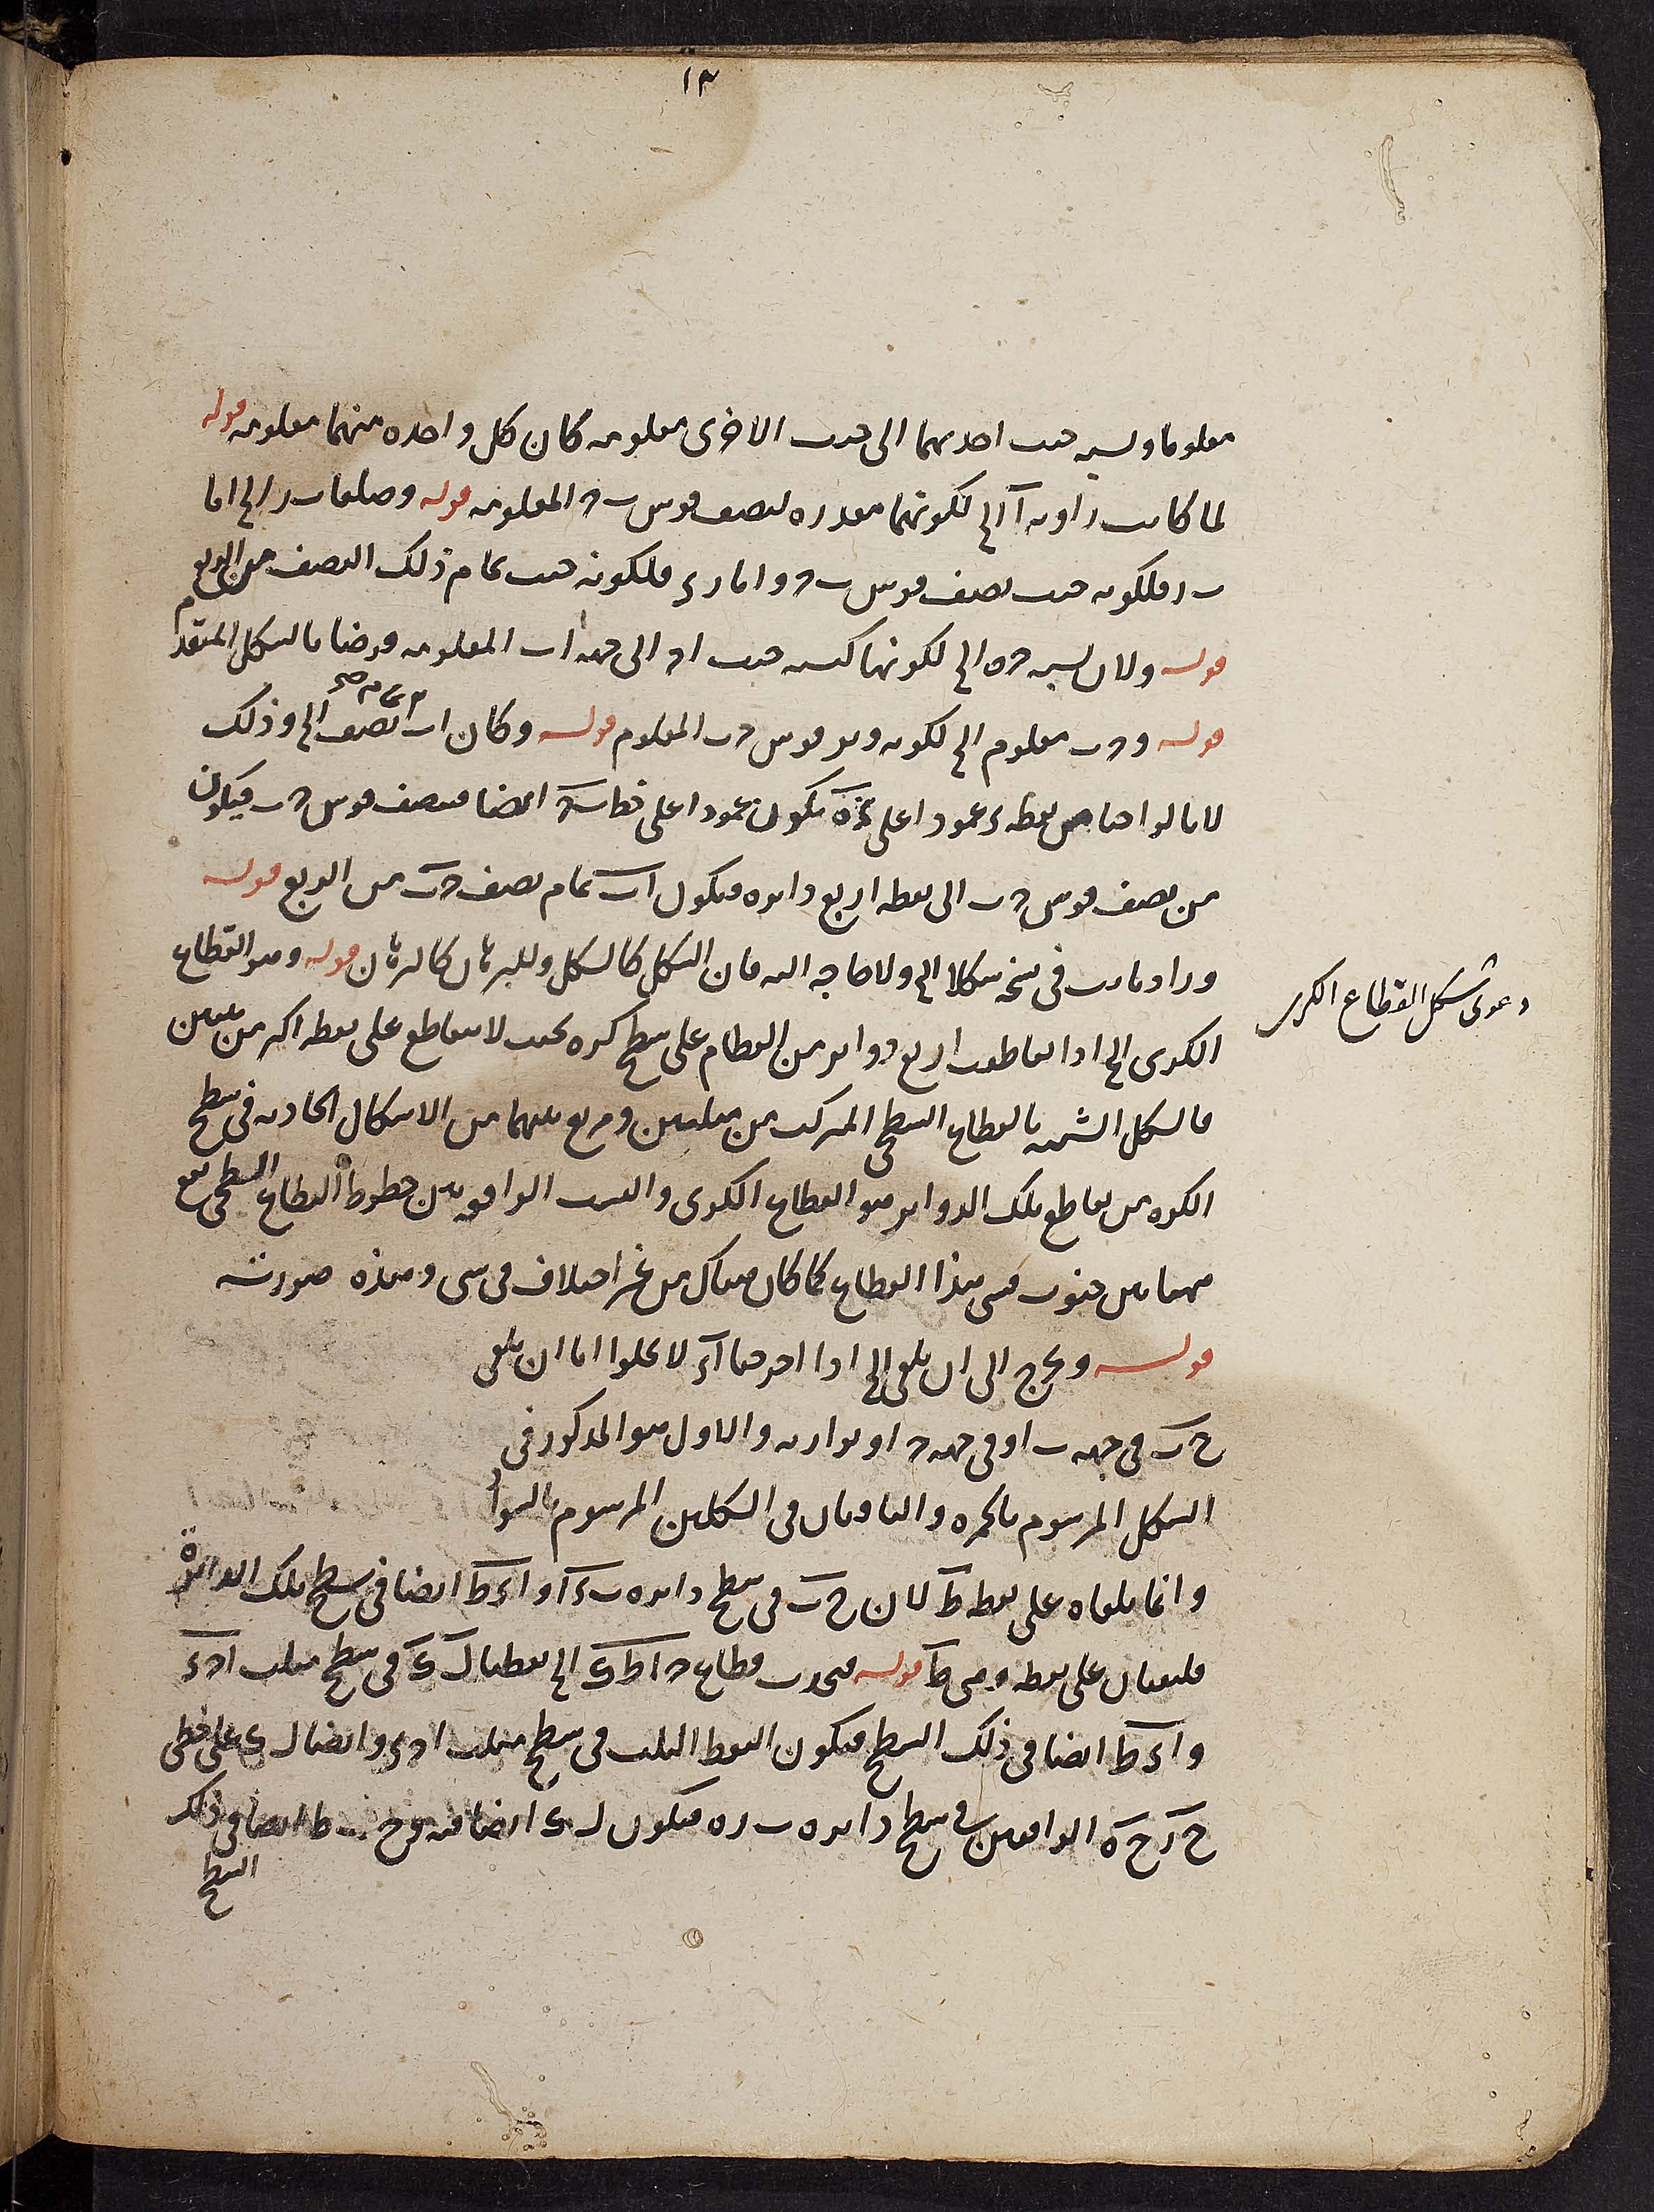 ١٣
معلوما ونسبه جيب احديهما الى جيب الاخرى معلومه كان كل واحده منهما معلومه قوله
لما كانت زاويه آ الخ لكونهما مقدره بنصف قوس ب ح المعلومه قوله وضلعا ب ر الخ اما
ب ر فلكونه جيب نصف قوس ب ح واما ر ء فلكونه جيب تمام ذلك النصف من الربع
قوله ولان نسبه ح ه الخ لكونها كنسبه جيب ا ح الى جيب ا ب المعلومه فرضا بالشكل المتقدم
قوله و ح ب معلوم الخ لكونه وتر قوس ح ب المعلوم قوله وكان ا ب تمام نصف الخ وذلك
لانا لو اخرجنا من نقطه ء عمودا على يكون عمودا على خط ايضا فينصف قوس ح ب فيكون
من نصف قوس ح ب الى نقطه ا ربع دايره فيكون ا ب تمام نصف ح ب من الربع قوله
وزاد ثابت في نسخه شكلا الخ ولا حاجه اليه فان الشكل كالشكل والبرهان كالبرهان قوله وهو القطاع
الكرى الخ اذا تقاطعت اربع دواير من العظام على سطح كره بحيث لا يتقاطع على نقطه اكثر من ثنتين
فالشكل الشبيه بالقطاع السطحى المركب من مثلثين ومربع بينهما من الاشكال الحادثه فى سطح
الكره من تقاطع تلك الدواير هو القطاع الكرى والنسب الواقعه بين خطوط القطاع السطحى تقع
ههنا بين جيوب قسى هذا القطاع كما كان هناك من غير اختلاف فى شى وهذه صورته
قوله ويخرج الى ان يلقى الخ اذا اخرجنا آء لا يخلوا اما ان يلقى
ح ب فى جهه ب او فى جهه ح او يوازيه والاول هو المذكور فى
الشكل المرسوم بالحمره والباقيان فى الشكلين المرسوم بالسواد
وانما يلقاه على نقطه ط لان ح ب فى سطح دايره ب ء آ و ا ء ط ايضا فى سطح تلك الدايرة
فيلتقيان على نقطه وهى ط قوله فيحدث قطاع ح ا ط ى الخ نقطتا ك ى فى سطح مثلث ا ح ء
و ا ء ط ايضا فى ذلك السطح فيكون النقط الثلث فى سطح مثلث ا ح ء وايضا ك ى على خطى
ح ر ح ه الواقعين فى سطح دايره ب ر ه فيكون ك ى ايضا فيه و ح ب ط ايضا فى ذلك
السطح
دعوى شكل القطاع الكرى